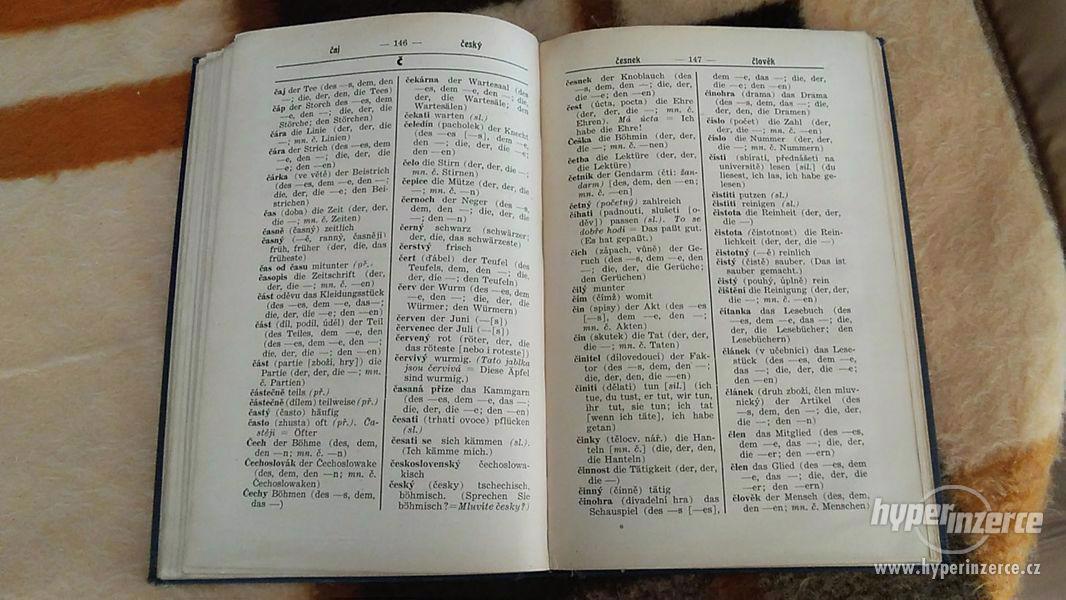 čaj — 146 — český
Č
čaj der Tee (des —s, dem, den
—; die, der, den, die Tees)
čáp der Storch des —es, dem
—e, den —; die, der, die
Störche; den Störchen)
čára die Linie (der, der, die
—; mn. č. Linien)
čára der Strich (des —es, dem
—e, den —; die, der, die
—e; den —en)
čárka (ve větě) der Beistrich
(des —es, dem —e, den —;
die, der, die —e; den Bei-
strichen)
čas (doba) die Zeit (der, der,
die —; mn. č. Zeiten)
časně (časný) zeitlich
časný (—ě, ranný, časněji)
früh, früher (der, die, das
früheste)
čas od času mitunter (př.)
časopis die Zeitschrift (der,
der, die —; mn. č. —en)
část oděvu das Kleidungsstück
(des —es, dem —e, das—;
die, der, die —e; den —en)
část (díl, podíl, úděl) der Teil
(des Teiles, dem —e, den
—; des —es, dem —e, den —;
die, der, die —; den —en)
část (partie [zboží, hry]) die
Partie (der, der, die —; mn.
č. Partien)
částečně teils (př.)
částečně (dílem) teilweise (př.)
častý (často) häufig
často (zhusta) oft (př.). Ča-
stěji = Öfter
Čech der Böhme (des, dem,
den —n; mn. č. —n)
Čechoslovák der Čechoslowake
(des, dem, den —n; mn. č.
Čechoslowaken)
Čechy Böhmen (des —s, dem,
das —)
čekárna der Wartesaal (des
—es, dem —e, den —; die,
der, die Wartesäle; den
Wartesälen)
čekati warten (sl.)
čeledín (pacholek) der Knecht
(des —es [—s], dem —e,
den —; die, der, die —e;
den —en)
čelo die Stirn (der, der, die
—; mn. č. Stirnen)
čepice die Mütze (der, der,
die —; mn. č. —n)
černoch der Neger (des —s,
dem, den —; die, der, die
—; den —n)
černý schwarz (schwärzer;
der, die, das schwärzeste)
čerstvý frisch
čert (ďábel) der Teufel (des
Teufels, dem, den —; die,
der, die —; den Teufeln)
červ der Wurm (des —es, dem
—e, den —; die, der, die
Würmer; den Würmern)
červen der Juni (—[s])
červenec der Juli (—[s])
červený rot (röter, der, die
das röteste [nebo i roteste])
červivý wurmig. (Tato jablka
jsou červivá = Diese Äpfel
sind wurmig.)
česaná příze das Kammgarn
(des —es, dem —e, das —;
die, der, die —e; den —en)
česati (trhati ovoce) pflücken
(sl.)
česati se sich kämmen (sl.).
(Ich kämme mich.)
československý čechoslowa-
kisch
český (česky) tschechisch,
böhmisch. (Sprechen Sie
böhmisch?=Mluvíte česky?)
česnek — 147 — člověk
česnek der Knoblauch (des
—s, dem, den —; die, der,
die —e; den —en)
čest (úcta, pocta) die Ehre
(der, der, die —; mn. č.
Ehren). Má úcta = Ich
habe die Ehre!
Češka die Böhmin (der, der,
die —; mn. č. —nen)
četba die Lektüre (der, der,
die Lektüre)
četník der Gendarm (čti: žan-
darm) [des, dem, den —en;
mn. č. —en]
četný (početný) zahlreich
číhati (padnouti, slušeti [o-
děv]) passen (sl.). To se
dobře hodí = Das paßt gut.
(Es hat gepaßt.)
čich (zápach, vůně) der Ge-
ruch (des —s, dem —e, den
—; die, der, die Gerüche;
den Gerüchen)
čilý munter
čím (čímž) womit
čin (spisy) der Akt (des —es
[—s], dem —e, den —;
mn. č. Akten)
čin (skutek) die Tat (der, der,
die —; mn. č. Taten)
činitel (dílovedoucí) der Fak-
tor (des —s, dem, den —;
die, der, den, die —en)
činiti (dělati) tun [sil.] (ich
tue, du tust, er tut, wir tun,
ihr tut, sie tun; ich tat
[wenn ich täte], ich habe
getan)
činky (tělocv. nář.) die Han-
teln [mn. č.] (die, der, die,
den Hanteln)
činnost die Tätigkeit (der, der,
die —)
činný (činně) tätig
činohra (divadelní hra) das
Schauspiel (des —s [—es],
dem —e, das —; die, der,
die —e; den —en)
činohra (drama) das Drama
(des —s, dem, das —; die,
der, den, die Dramen)
číslo (počet) die Zahl (der,
der, die —; mn. č. —en)
číslo die Nummer (der, der,
die —; mn. č. Nummern)
čísti (sbírati, přednášeti na
universitě) lesen [sil.] (du
liesest, ich las, ich habe ge-
lesen)
čistiti putzen (sl.)
čistiti reinigen (sl.)
čistota die Reinheit (der, der,
die —)
čistota (čistotnost) die Rein-
lichkeit (der, der, die —)
čistotný (—ě) reinlich
čistý (čistě) sauber. (Das ist
sauber gemacht.)
čistý (pouhý, úplně) rein
čištění die Reinigung (der, der,
die —; mn. č. —en)
čítanka das Lesebuch (des
—es, dem —e, das —; die,
der, die Lesebücher; den
Lesebüchern)
článek (v učebnici) das Lese-
stück (des —es, dem —e,
das —; die, der, die —e;
den —en)
článek (druh zboží, člen mluv-
nický) der Artikel (des
—s, dem, den —; die, der,
die —; den —n)
člen das Mitglied (des —es,
dem —e, das —; die, der,
die —er; den —ern)
člen das Glied (des —es, dem
—e, das —; die, der, die
—er; den —ern)
člověk der Mensch (des, dem,
den —en; mn. č. Menschen)
hyperinzerce
www.hyperinzerce.cz